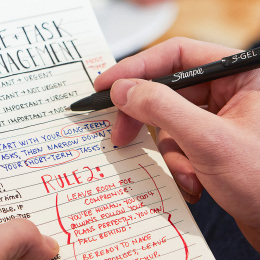 E + TASK
NAGEMENT
TANT + URGENT
TANT + NOT URGENT
IMPORTANT + URGENT
IMPORTANT + NOT
START WITH YOUR LONG-TERM
TASKS, THEN NARROW DOWN T
YOUR SHORT-TERM TASKS.
RULE 2:
LEAVE ROOM FOR
COMPROMISE.
YOU'RE HUMAN, YOU WON'T
ALWAYS FOLLOW YOUR
PLANS PERFECTLY. YOU CAN
FALL BEHIND!
BE READY TO MAKE
LEAVE
TIME)
IBLE, IF
Sharpie
S·GEL